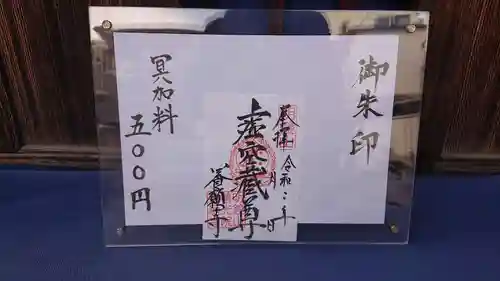 御朱印
奉拝 令和二年 月 日
虚空蔵尊
養願寺
冥加料
五〇〇円